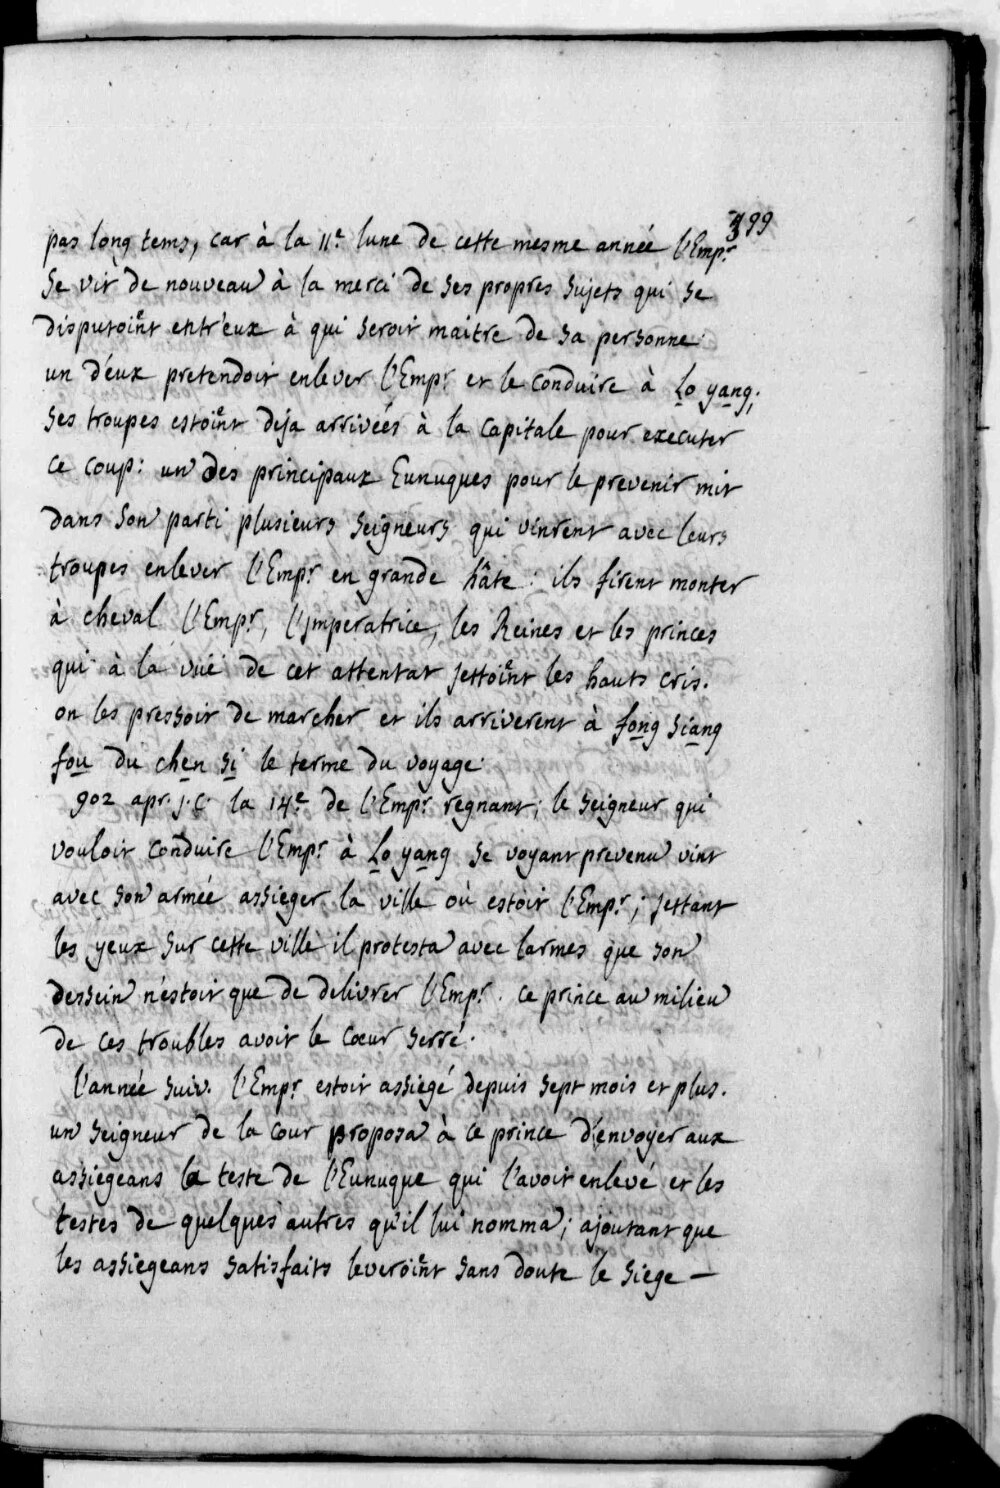 399
pas long tems, car à la 11.e lune de cette mesme année l'Emp.r
se vit de nouveau à la merci de ses propres sujets qui se
disputoient entr'eux à qui seroit maitre de sa personne
un d'eux pretendoit enlever l'Emp.r et le conduire à Lo yang;
ses troupes estoient deja arrivées à la capitale pour executer
ce coup: un des principaux Eunuques pour le prevenir mit
dans son parti plusieurs seigneurs qui vinrent avec leurs
troupes enlever l'Emp.r en grande hâte: ils firent monter
à cheval l'Emp.r, l'Imperatrice, les Reines et les princes
qui à la vüe de cet attentat jettoient les hauts cris.
on les pressoit de marcher et ils arriverent à fong siang
fou du chen si le terme du voyage.
902 apr. j.C. la 14.e de l'Emp.r regnant; le seigneur qui
vouloit conduire l'Emp.r à Lo yang se voyant prevenu vint
avec son armée assieger la ville où estoit l'Emp.r; jettant
les yeux sur cette ville il protesta avec larmes que son
dessein n'estoit que de delivrer l'Emp.r. ce prince au milieu
de ces troubles avoit le cœur serré.
l'année suiv. l'Emp.r estoit assiegé depuis sept mois et plus.
un seigneur de la cour proposa à ce prince d'envoyer aux
assiegeans la teste de l'Eunuque qui l'avoit enlevé et les
testes de quelques autres qu'il lui nomma; ajoutant que
les assiegeans satisfaits leveroient sans doute le siege —